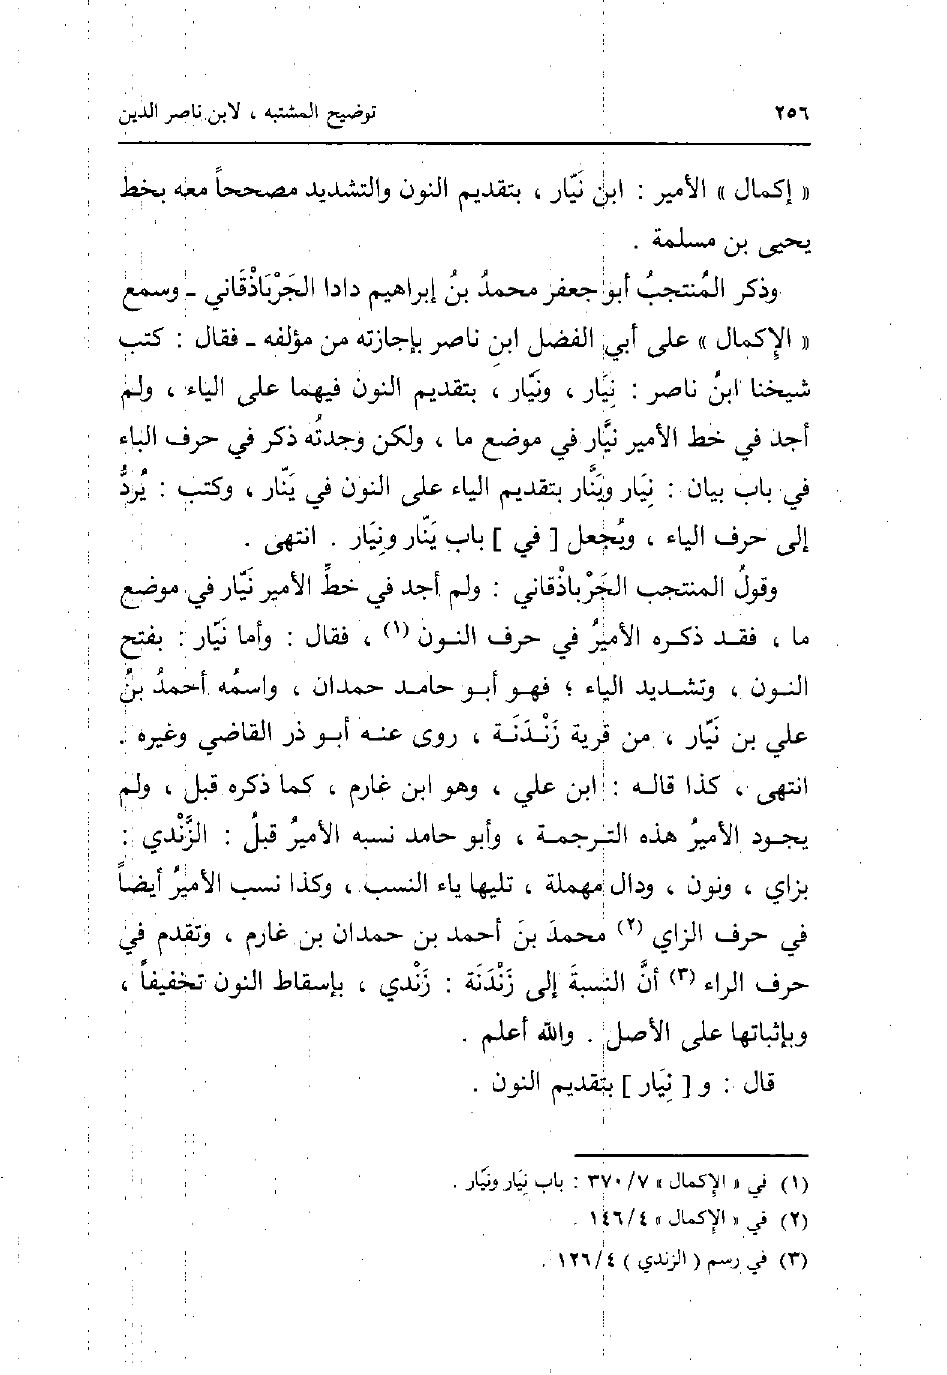 ٢٥٦ توضيح المشتبه ، لابن ناصر الدين
« إكمال » الأمير : ابن نَيّار ، بتقديم النون والتشديد مصححاً معه بخط
يحيى بن مسلمة .
وذكر المُنتجبُ أبو جعفر محمدُ بنُ إبراهيم دادا الجَرْبَاذْقَاني ـ وسمع
« الإكمال » على أبي الفضل ابن ناصر بإجازته من مؤلفه ـ فقال : كتب
شيخنا ابنُ ناصر : نِيَار ، ونَيّار ، بتقديم النون فيهما على الياء ، ولم
أجد في خط الأمير نيَّار في موضع ما ، ولكن وجدتُه ذكر في حرف الباء
في باب بيان : نِيَار ويَنَّار بتقديم الياء على النون في يَنّار ، وكتب : يُردُّ
إلى حرف الياء ، ويُجعل [ في ] باب يَنّار ونِيَار . انتهى .
وقولُ المنتجب الجَرْباذْقاني : ولم أجد في خطِّ الأمير نَيّار في موضع
ما ، فقد ذكره الأميرُ في حرف النون (١) ، فقال : وأما نَيّار : بفتح
النون ، وتشديد الياء ؛ فهو أبو حامد حمدان ، واسمُه أحمدُ بنُ
علي بن نَيّار ، من قرية زَنْدَنَة ، روى عنه أبو ذر القاضي وغيره .
انتهى ، كذا قاله : ابن علي ، وهو ابن غارم ، كما ذكره قبل ، ولم
يجود الأميرُ هذه الترجمة ، وأبو حامد نسبه الأميرُ قبلُ : الزَّنْدي :
بزاي ، ونون ، ودال مهملة ، تليها ياء النسب ، وكذا نسب الأميرُ أيضاً
في حرف الزاي (٢) محمدَ بنَ أحمد بن حمدان بن غارم ، وتقدم في
حرف الراء (٣) أنَّ النسبةَ إلى زَنْدَنَة : زَنْدي ، بإسقاط النون تخفيفاً ،
وبإثباتها على الأصل . والله أعلم .
قال : و [ نِيَار ] بتقديم النون .
(١) في « الإكمال » ٣٧٠/٧ : باب نِيَار ونَيّار .
(٢) في « الإكمال » ١٤٦/٤ .
(٣) في رسم ( الزندي ) ١٢٦/٤ .